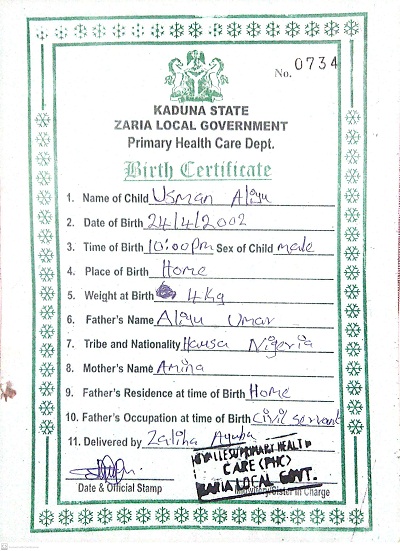 No. 0734
KADUNA STATE
ZARIA LOCAL GOVERNMENT
Primary Health Care Dept.
Birth Certificate
1. Name of Child Usman Aliyu
2. Date of Birth 24/4/2002
3. Time of Birth 10:00pm Sex of Child male
4. Place of Birth Home
5. Weight at Birth 4kg
6. Father's Name Aliyu Umar
7. Tribe and Nationality Hausa Nigeria
8. Mother's Name Amina
9. Father's Residence at time of Birth Home
10. Father's Occupation at time of Birth civil servant
11. Delivered by Zaliha Ayuba
PRIMARY HEALTH
CARE (PHC)
ZARIA LOCAL GOVT.
Date & Official Stamp
Sister in Charge